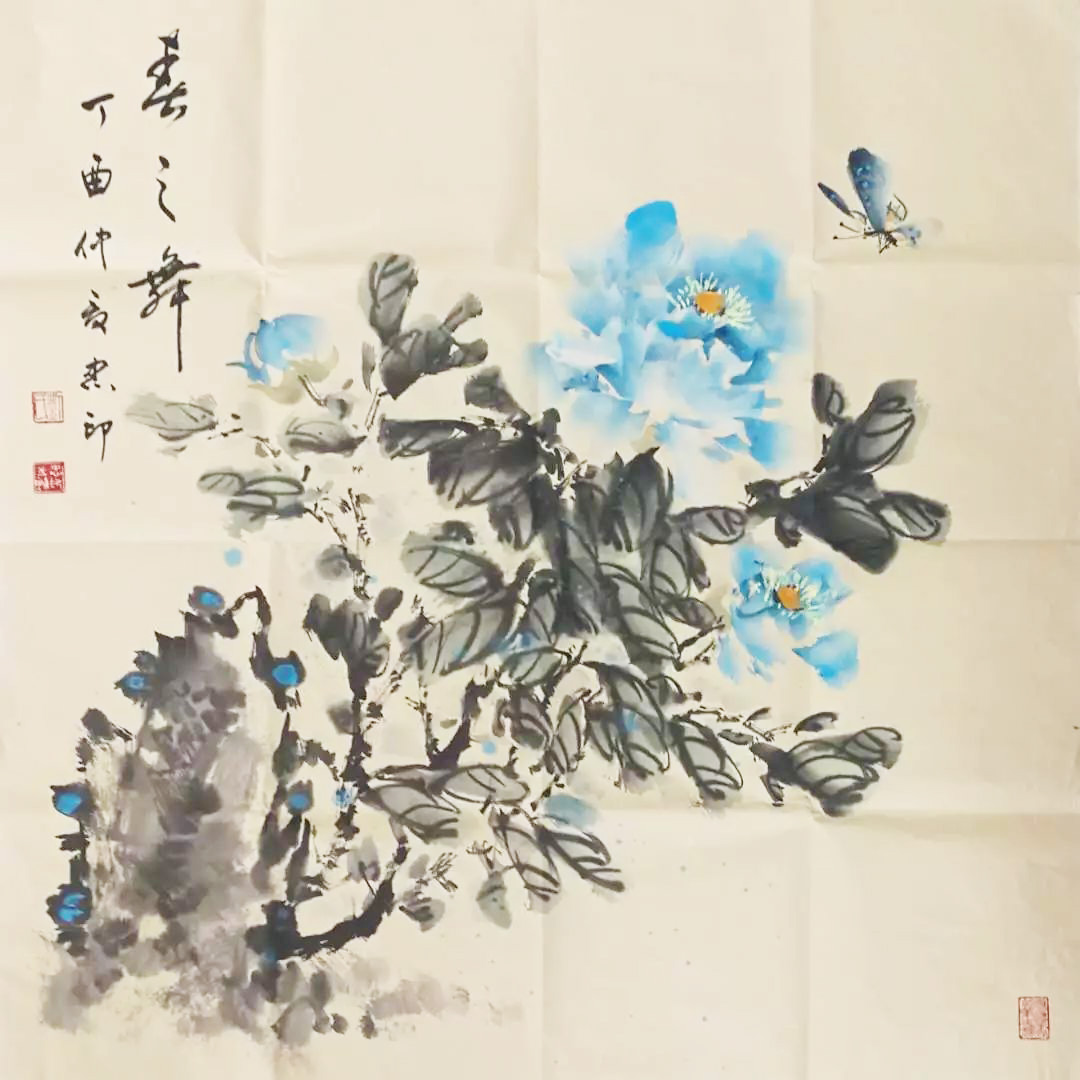 春之舞
丁酉仲夏忠印